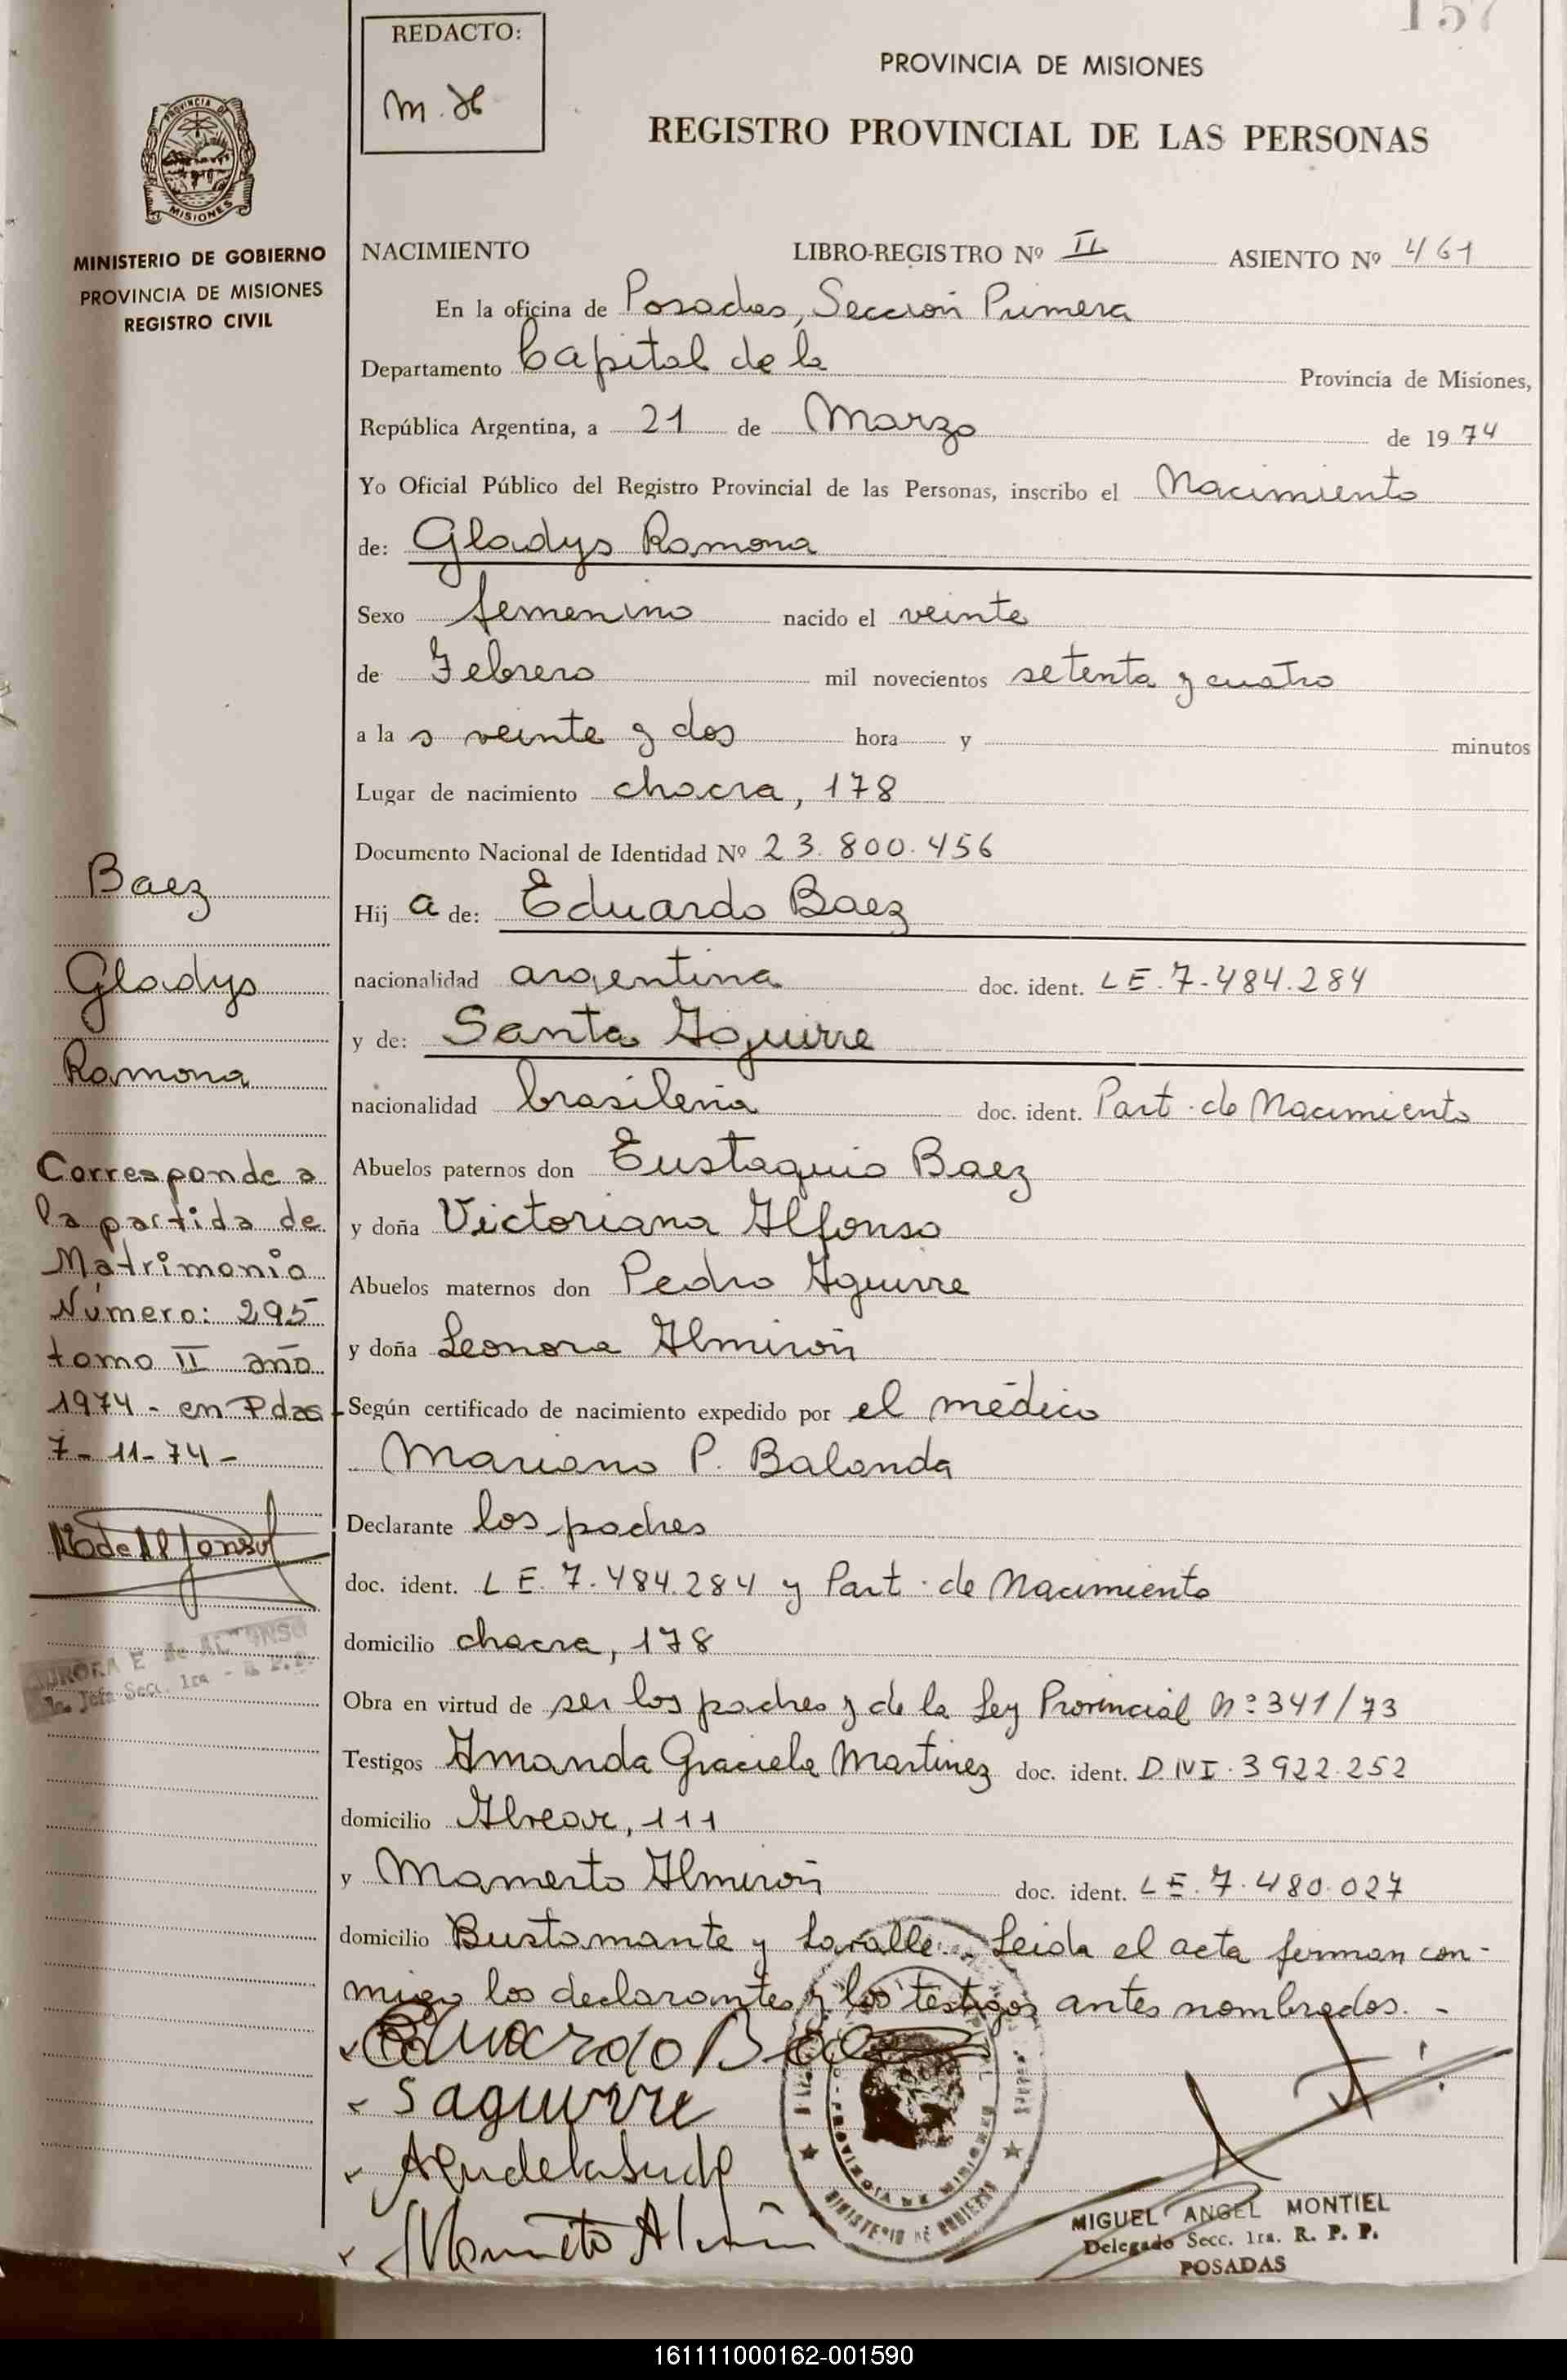 157
REDACTO:
m.
PROVINCIA DE MISIONES
REGISTRO PROVINCIAL DE LAS PERSONAS
PROVINCIA DE
MISIONES
MINISTERIO DE GOBIERNO
PROVINCIA DE MISIONES
REGISTRO CIVIL
NACIMIENTO LIBRO-REGISTRO Nº II ASIENTO Nº 461
En la oficina de Posadas, Sección Primera
Departamento Capital de la Provincia de Misiones,
República Argentina, a 21 de Marzo de 1974
Yo Oficial Público del Registro Provincial de las Personas, inscribo el Nacimiento
de: Gladys Ramona
Sexo femenino nacido el veinte
de Febrero mil novecientos setenta y cuatro
a la s veinte y dos hora y minutos
Lugar de nacimiento chacra, 178
Documento Nacional de Identidad Nº 23.800.456
Hij a de: Eduardo Baez
nacionalidad argentina doc. ident. LE.7.484.284
y de: Santa Aguirre
nacionalidad brasileña doc. ident. Part. de Nacimiento
Abuelos paternos don Eustaquio Baez
y doña Victoriana Alfonso
Abuelos maternos don Pedro Aguirre
y doña Leonora Almirón
Según certificado de nacimiento expedido por el médico
Mariano P. Balanda
Declarante los padres
doc. ident. LE.7.484.284 y Part. de Nacimiento
domicilio chacra, 178
Obra en virtud de ser los padres y de la Ley Provincial Nº 341/73
Testigos Amanda Graciela Martinez doc. ident. DNI.3922.252
domicilio Alvear, 111
y Mamerto Almirón doc. ident. LE.7.480.027
domicilio Bustamante y Lavalle. Leida el acta firman con-
migo los declarantes y los testigos antes nombrados. -
Eduardo Baez
Saguirre
Mamerto Almirón
MINISTERIO DE GOBIERNO
PROVINCIA DE MISIONES
MIGUEL ANGEL MONTIEL
Delegado Secc. 1ra. R. P. P.
POSADAS
Baez
Gladys
Ramona
Corresponde a
la partida de
Matrimonio
Número: 295
tomo II año
1974 - en Pdas
7-11-74-
AURORA E. de ALFONSO
Jefa Secc. 1ra - R.P.P.
161111000162-001590